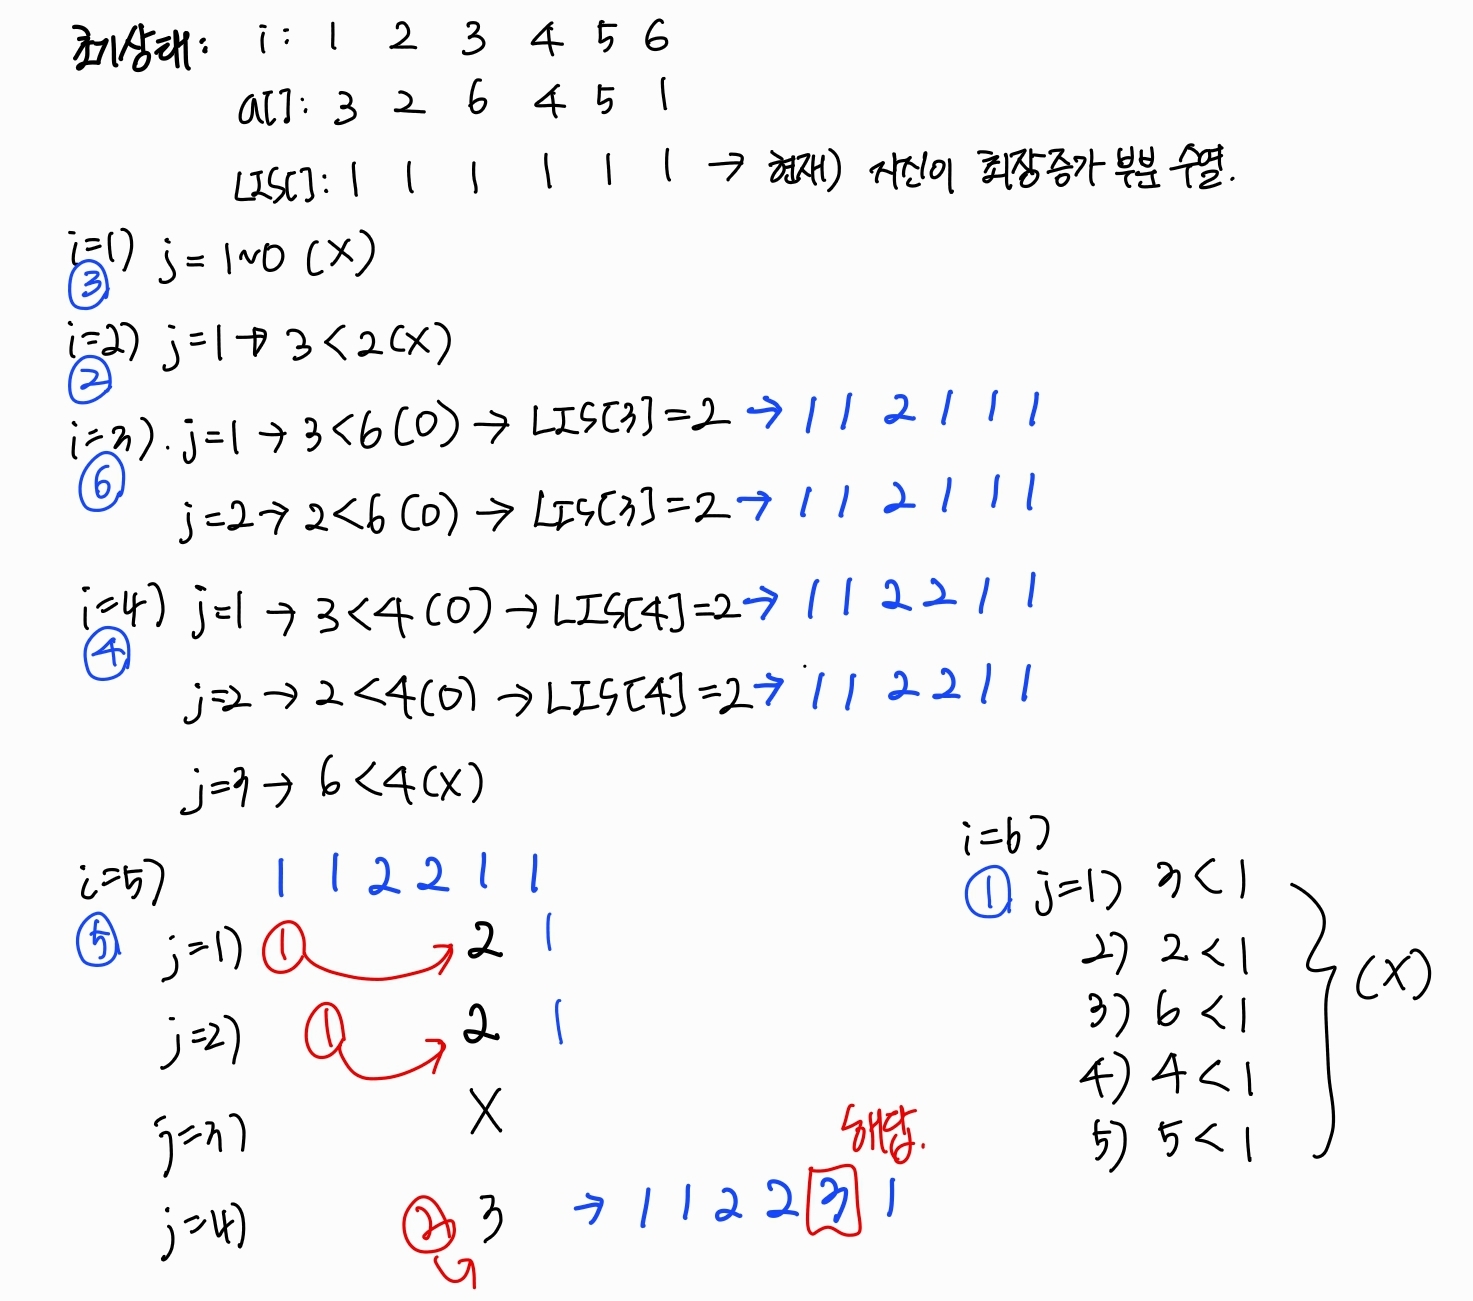 초기상태: i: 1 2 3 4 5 6
a[]: 3 2 6 4 5 1
LIS[]: 1 1 1 1 1 1 → 현재) 자신이 최장증가 부분 수열.
i=1) j=1~0 (X)
③
i=2) j=1→ 3<2(X)
②
i=3). j=1 → 3<6(O) → LIS[3]=2 → 1 1 2 1 1 1
⑥
j=2→ 2<6(O) → LIS[3]=2 → 1 1 2 1 1 1
i=4) j=1 → 3<4(O) → LIS[4]=2 → 1 1 2 2 1 1
④
j=2 → 2<4(O) → LIS[4]=2 → 1 1 2 2 1 1
j=3 → 6<4(X)
i=5) 1 1 2 2 1 1
⑤
j=1) ① 2 1
j=2) ① 2 1
j=3) X
j=4) ② 3 → 1 1 2 2 3 1
해답.
i=6)
① j=1) 3<1
2) 2<1
3) 6<1
4) 4<1
5) 5<1
(X)